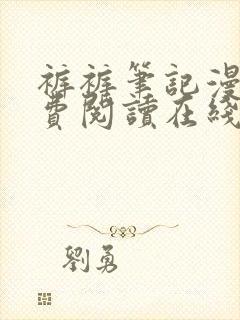 裤裤筆記漫
費閱讀在綫
劉勇